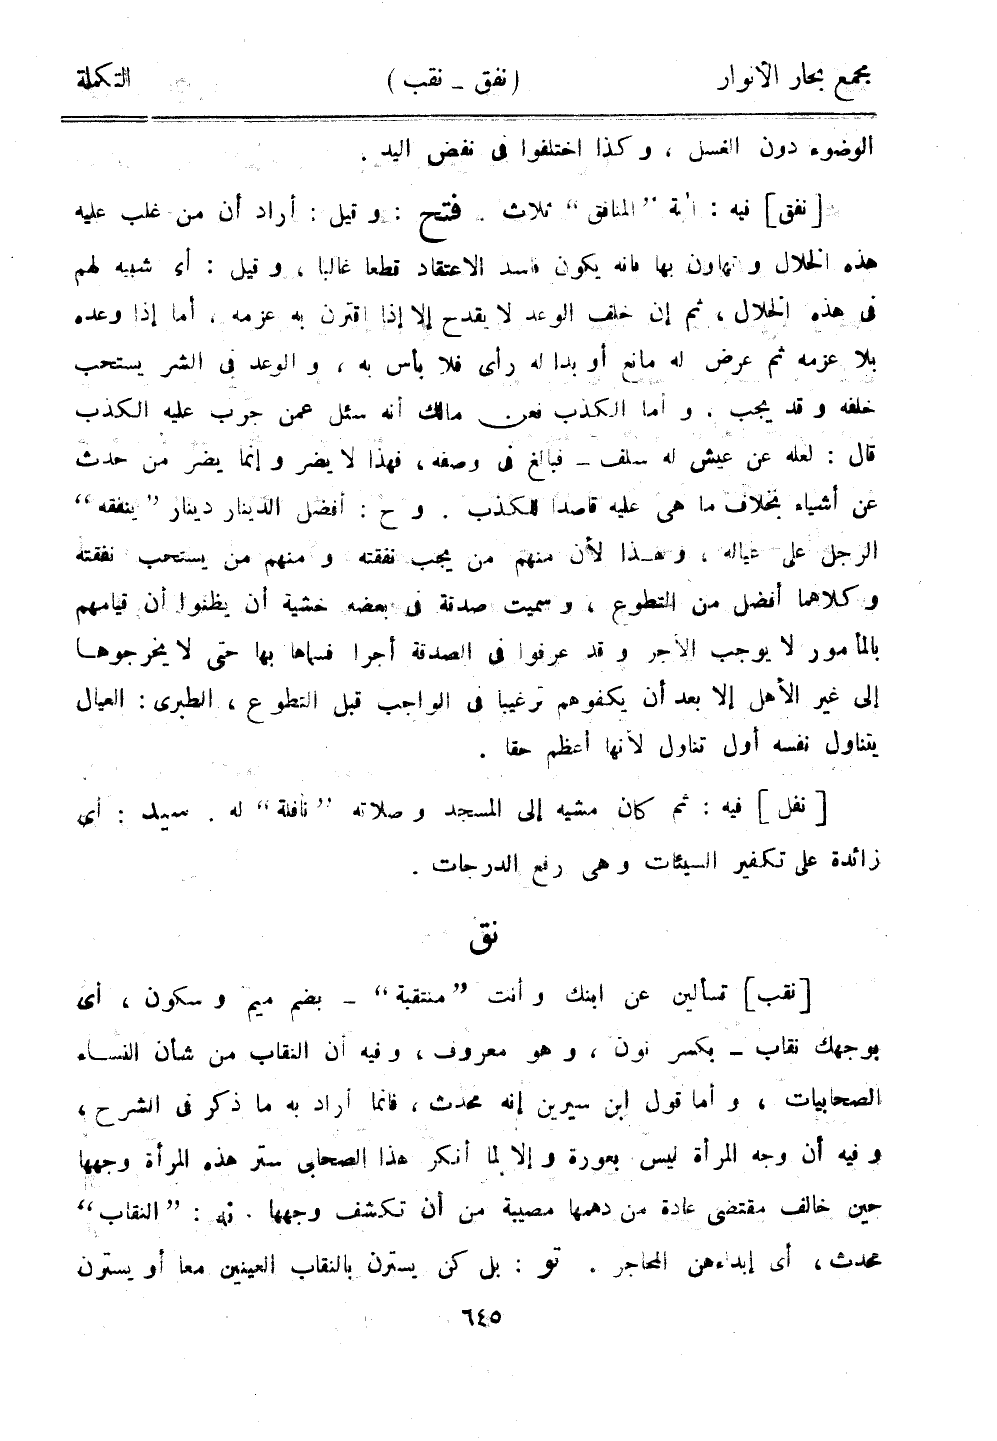 مجمع بحار الأنوار (نفق ـ نقب) التكملة
الوضوء دون الغسل ، وكذا اختلفوا فى نفض اليد .
[نفق] فيه : آية "المنافق" ثلاث . فتح : و قيل : أراد أن من غلب عليه
هذه الخلال و تهاون بها فانه يكون فاسد الاعتقاد قطعا غالبا ، و قيل : أى شبيه لهم
فى هذه الخلال ، ثم إن خلف الوعد لا يقدح إلا إذا اقترن به عزمه ، أما إذا وعده
بلا عزمه ثم عرض له مانع أو بدا له رأى فلا بأس به ، و الوعد فى الشر يستحب
خلفه و قد يجب . و أما الكذب فعن مالك أنه سئل عمن جرب عليه الكذب
قال : لعله عن عيش له سلف ـ فبالغ فى وصفه ، فهذا لا يضر و إنما يضر من حدث
عن أشياء بخلاف ما هى عليه قاصدا للكذب . و ح : أفضل الدينار دينار "ينفقه"
الرجل على عياله ، و هذا لأن منهم من يجب نفقته و منهم من يستحب نفقته
و كلاهما أفضل من التطوع ، و سميت صدقة فى بعضه خشية أن يظنوا أن قيامهم
بالمأمور لا يوجب الأجر و قد عرفوا فى الصدقة أجرا فسماها بها حتى لا يخرجوها
إلى غير الأهل إلا بعد أن يكفوهم ترغيبا فى الواجب قبل التطوع ، الطبرى : العيال
يتناول نفسه أول تناول لأنها أعظم حقا .
[نفل] فيه : ثم كان مشيه إلى المسجد و صلاته "نافلة" له . سيد : أى
زائدة على تكفير السيئات و هى رفع الدرجات .
نق
[نقب] تسألين عن ابنك و أنت "منتقبة" ـ بضم ميم و سكون ، أى
بوجهك نقاب ـ بكسر نون ، و هو معروف ، و فيه أن النقاب من شأن النساء
الصحابيات ، و أما قول ابن سيرين إنه محدث ، فانما أراد به ما ذكر فى الشرح ،
و فيه أن وجه المرأة ليس بعورة و إلا لما أنكر هذا الصحابى ستر هذه المرأة وجهها
حين خالف مقتضى عادة من دهمها مصيبة من أن تكشف وجهها . نه : "النقاب"
محدث ، أى إبداءهن المحاجر . تو : بل كن يسترن بالنقاب العينين معا أو يسترن
٦٤٥